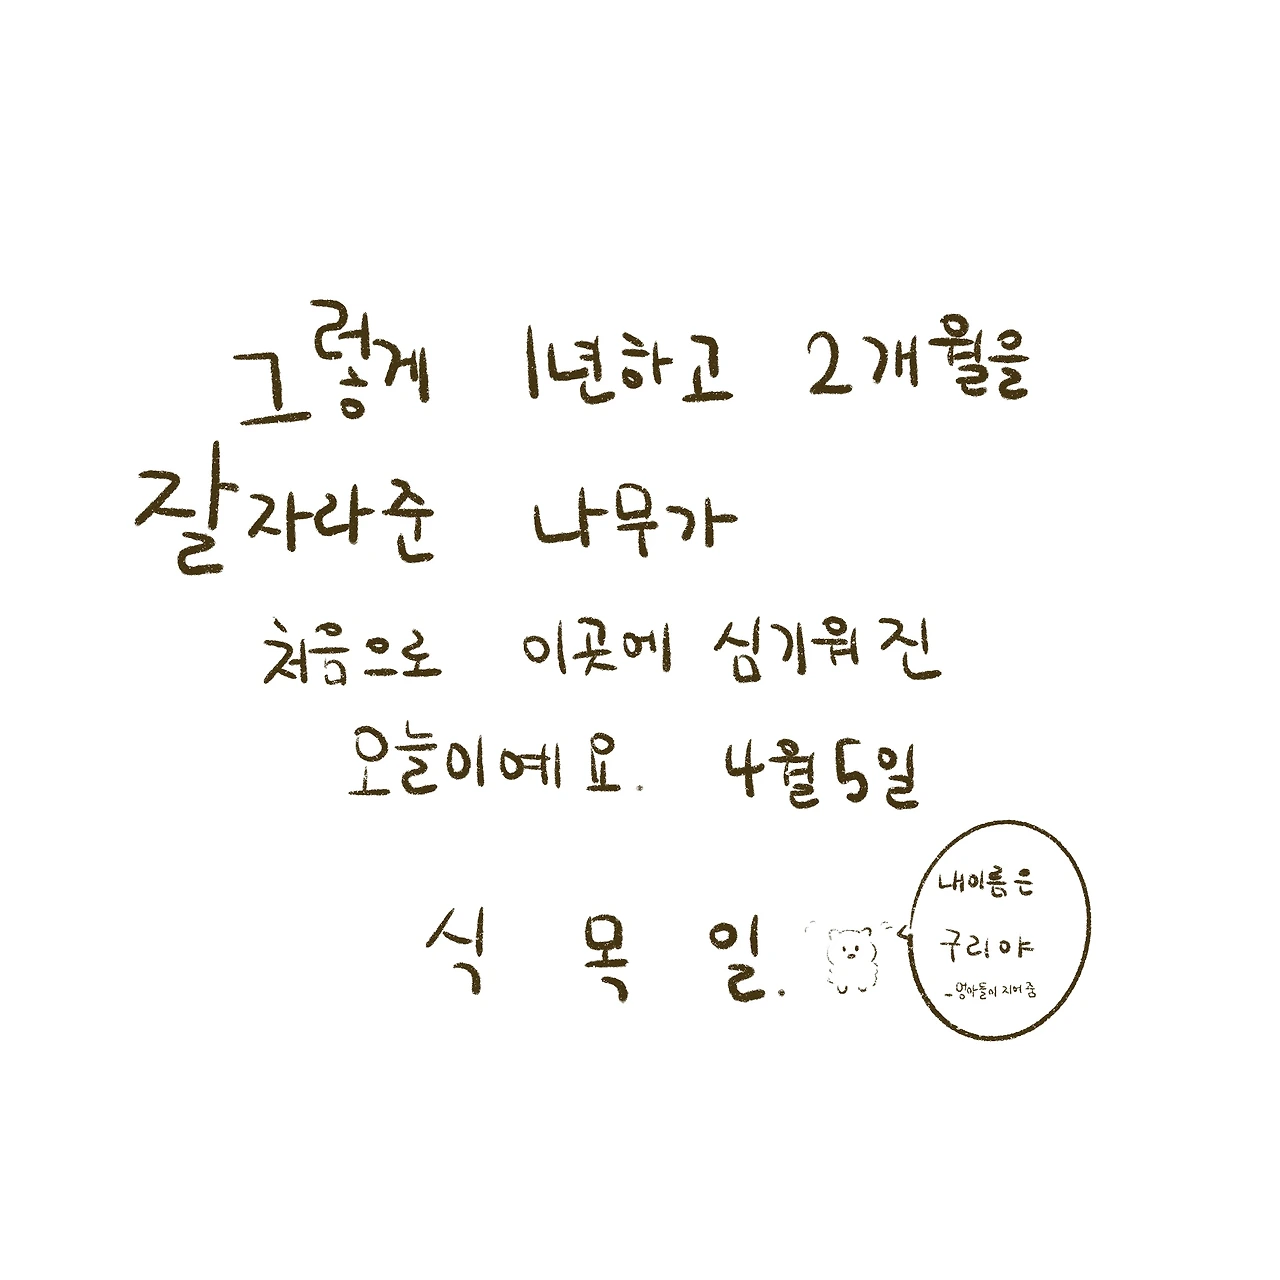 그렇게 1년하고 2개월을
잘자라준 나무가
처음으로 이곳에 심기워진
오늘이예요. 4월5일
식 목 일.
내이름은
구리야
- 엄마들이 지어줌